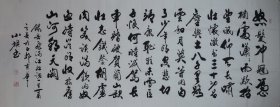 怒髮衝冠憑
欄處瀟瀟雨歇
抬望眼仰天長
嘯壯懷激烈
三十功名
塵與土八千里路
雲和月莫等閒白
了少年頭空悲切
靖康恥猶未雪臣
子恨何時滅駕長
車踏破賀蘭山缺
壯志飢餐胡虜
肉笑談渴飲匈奴
血待從頭收拾舊
山河朝天闕
岳飛滿江紅